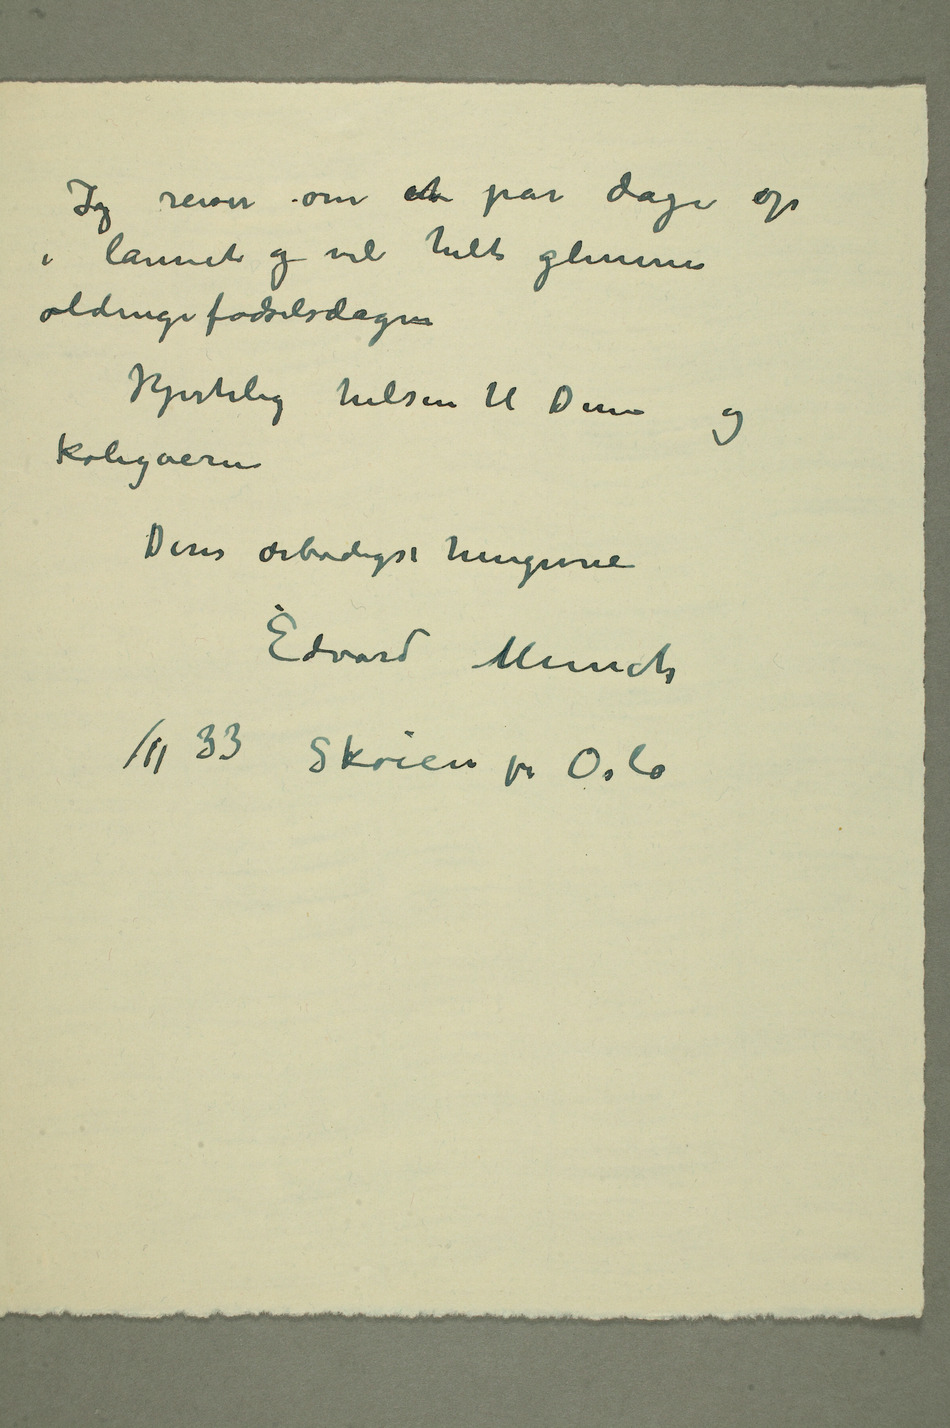 Jeg reiser om et par dage op
i lannet og vil helt glemme
oldingefødselsdagen
Hjertelig hilsen til Dem og
kolegaerne
Deres ærbødigst hengivne
Edvard Munch
33 Skøien pr Oslo